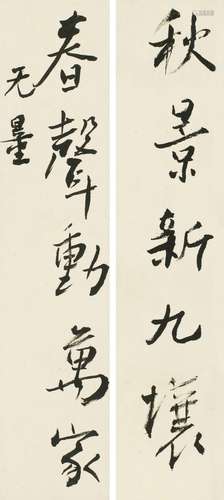 秋景新九壤
春聲動萬家
无量